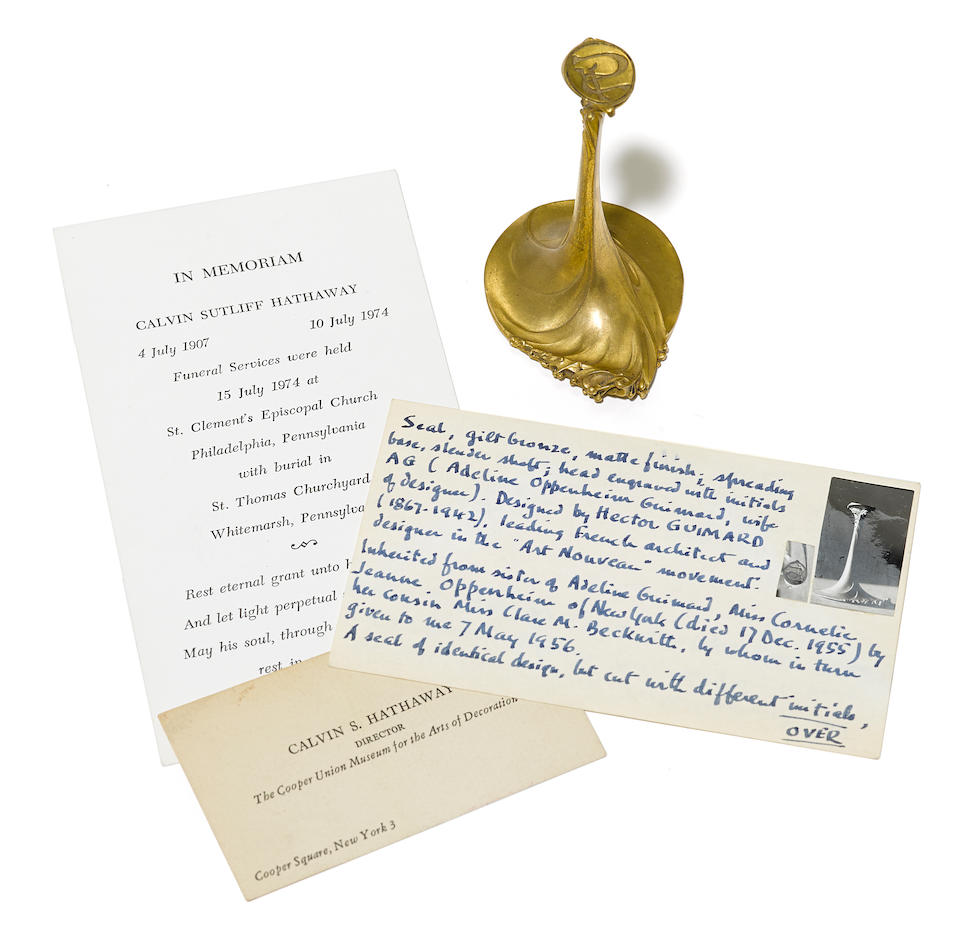 IN MEMORIAM
CALVIN SUTLIFF HATHAWAY
4 July 1907 10 July 1974
Funeral Services were held
15 July 1974 at
St. Clement's Episcopal Church
Philadelphia, Pennsylvania
with burial in
St. Thomas Churchyard
Whitemarsh, Pennsylva
Rest eternal grant unto
And let light perpetual
May his soul, through
rest in
CALVIN S. HATHAWAY
DIRECTOR
The Cooper Union Museum for the Arts of Decoration
Cooper Square, New York 3
Seal, gilt bronze, matte finish; spreading
base, slender shaft; head engraved with initials
AG (Adeline Oppenheim Guimard, wife
of designer). Designed by Hector GUIMARD
(1867-1942), leading French architect and
designer in the "Art Nouveau" movement.
Inherited from sister of Adeline Guimard, Miss Cornelie
Jeanne Oppenheim of New York (died 17 Dec. 1955) by
her cousin Miss Clare M. Beckwith, by whom in turn
given to me 7 May 1956.
A seal of identical design, but cut with different initials,
OVER